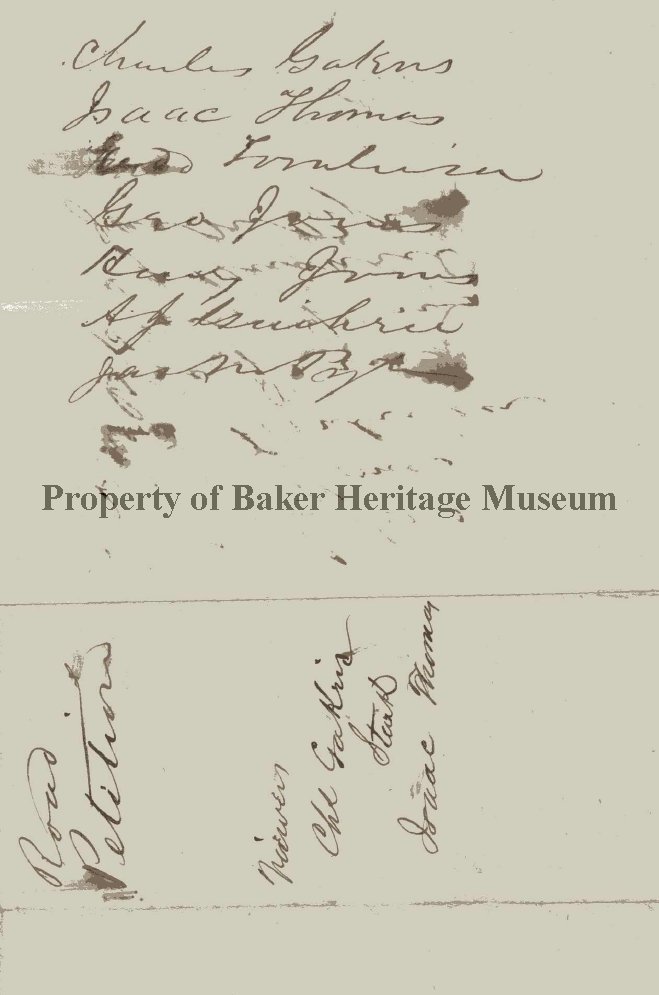 Charles Gakins
Isaac Thomas
Tomlinson
Geo Jones
Henry Jones
A J Guthrie
Jas
Property of Baker Heritage Museum
Road
Petition
Viewers
Chl Gakris
Stark
Isaac Thomas